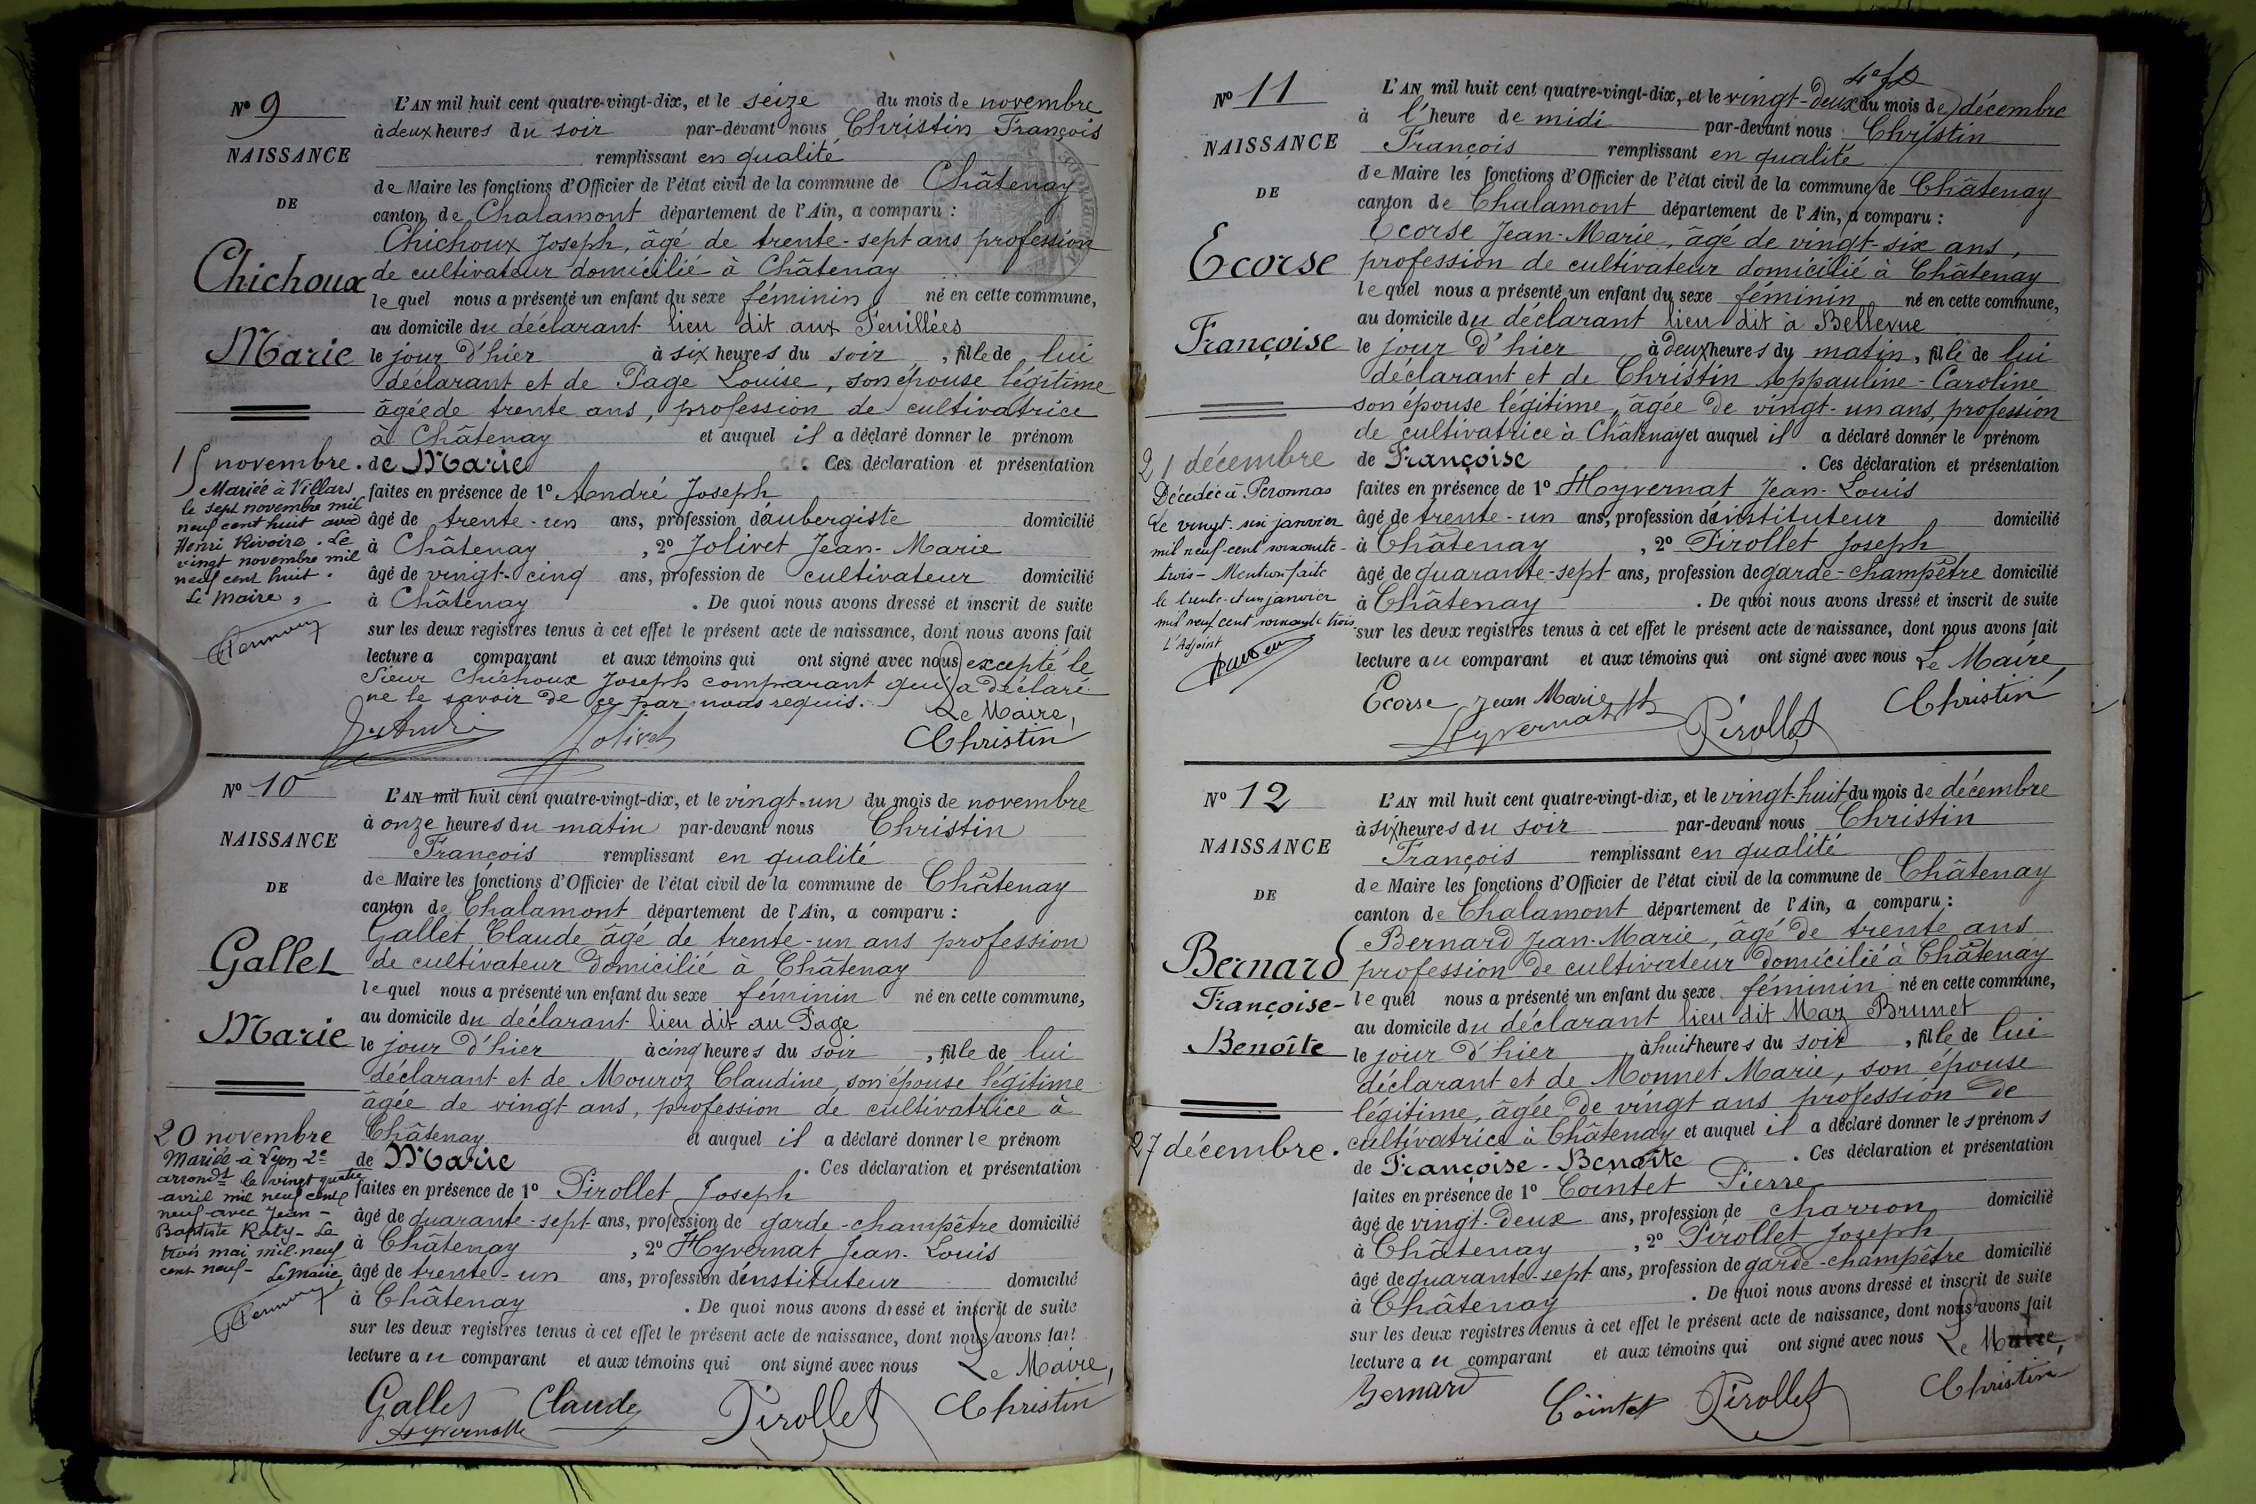 Nº 9
NAISSANCE
DE
Chichoux
Marie
15 novembre.
Mariée à Villars
le sept novembre mil
neuf cent huit avec
Henri Rivoire. Le
vingt novembre mil
neuf cent huit.
Le Maire,
L'AN mil huit cent quatre-vingt-dix, et le seize du mois de novembre
à deux heures du soir par-devant nous Christin François
remplissant en qualité
de Maire les fonctions d'Officier de l'état civil de la commune de Châtenay
canton de Chalamont département de l'Ain, a comparu :
Chichoux Joseph, âgé de trente-sept ans profession
de cultivateur domicilié à Châtenay
lequel nous a présenté un enfant du sexe féminin né en cette commune,
au domicile du déclarant lieu dit aux Feuillées
le jour d'hier à six heures du soir, fille de lui
déclarant et de Page Louise, son épouse légitime
âgée de trente ans, profession de cultivatrice
à Châtenay et auquel il a déclaré donner le prénom
de Marie. Ces déclaration et présentation
faites en présence de 1º André Joseph
âgé de trente-un ans, profession d'aubergiste domicilié
à Châtenay, 2º Jolivet Jean-Marie
âgé de vingt-cinq ans, profession de cultivateur domicilié
à Châtenay. De quoi nous avons dressé et inscrit de suite
sur les deux registres tenus à cet effet le présent acte de naissance, dont nous avons fait
lecture a comparant et aux témoins qui ont signé avec nous excepté le
Sieur Chichoux Joseph comparant qui a déclaré
ne le savoir de ce par nous requis.
Le Maire,
J. André Jolivet Christin
Nº 10
NAISSANCE
DE
Gallet
Marie
20 novembre
Mariée à Lyon 2e
arrondt le vingt quatre
avril mil neuf cent
neuf avec Jean-
Baptiste Raty - Le
trois mai mil neuf
cent neuf -
Le Maire
L'AN mil huit cent quatre-vingt-dix, et le vingt-un du mois de novembre
à onze heures du matin par-devant nous Christin
François remplissant en qualité
de Maire les fonctions d'Officier de l'état civil de la commune de Châtenay
canton de Chalamont département de l'Ain, a comparu :
Gallet Claude âgé de trente-un ans profession
de cultivateur domicilié à Châtenay
lequel nous a présenté un enfant du sexe féminin né en cette commune,
au domicile du déclarant lieu dit au Page
le jour d'hier à cinq heures du soir, fille de lui
déclarant et de Mouroz Claudine, son épouse légitime
âgée de vingt ans, profession de cultivatrice à
Châtenay et auquel il a déclaré donner le prénom
de Marie. Ces déclaration et présentation
faites en présence de 1º Pirollet Joseph
âgé de quarante-sept ans, profession de garde-champêtre domicilié
à Châtenay, 2º Hyvernat Jean-Louis
âgé de trente-un ans, profession d'instituteur domicilié
à Châtenay. De quoi nous avons dressé et inscrit de suite
sur les deux registres tenus à cet effet le présent acte de naissance, dont nous avons fait
lecture au comparant et aux témoins qui ont signé avec nous Le Maire,
Gallet Claude Pirollet Christin
Hyvernat
Nº 11
NAISSANCE
DE
Ecorse
Françoise
21 décembre
Décédée à Péronnas
Le vingt-six janvier
mil neuf-cent soixante-
trois - Mention faite
le trente-et-un janvier
mil neuf cent soixante trois.
L'Adjoint
L'AN mil huit cent quatre-vingt-dix, et le vingt-deux du mois de décembre
à l'heure de midi par-devant nous Christin
François remplissant en qualité
de Maire les fonctions d'Officier de l'état civil de la commune de Châtenay
canton de Chalamont département de l'Ain, a comparu :
Ecorse Jean-Marie, âgé de vingt-six ans,
profession de cultivateur domicilié à Châtenay
lequel nous a présenté un enfant du sexe féminin né en cette commune,
au domicile du déclarant lieu dit à Bellevue
le jour d'hier à deux heures du matin, fille de lui
déclarant et de Christin Appauline-Caroline
son épouse légitime, âgée de vingt-un ans, profession
de cultivatrice à Châtenay et auquel il a déclaré donner le prénom
de Françoise. Ces déclaration et présentation
faites en présence de 1º Hyvernat Jean-Louis
âgé de trente-un ans, profession d'instituteur domicilié
à Châtenay, 2º Pirollet Joseph
âgé de quarante-sept ans, profession de garde-champêtre domicilié
à Châtenay. De quoi nous avons dressé et inscrit de suite
sur les deux registres tenus à cet effet le présent acte de naissance, dont nous avons fait
lecture au comparant et aux témoins qui ont signé avec nous Le Maire,
Ecorse Jean Marie Christin
Hyvernat Pirollet
Nº 12
NAISSANCE
DE
Bernard
Françoise-
Benoîte
27 décembre.
L'AN mil huit cent quatre-vingt-dix, et le vingt-huit du mois de décembre
à six heures du soir par-devant nous Christin
François remplissant en qualité
de Maire les fonctions d'Officier de l'état civil de la commune de Châtenay
canton de Chalamont département de l'Ain, a comparu :
Bernard Jean-Marie, âgé de trente ans
profession de cultivateur domicilié à Châtenay
lequel nous a présenté un enfant du sexe féminin né en cette commune,
au domicile du déclarant lieu dit Maz Brunet
le jour d'hier à huit heures du soir, fille de lui
déclarant et de Monnet Marie, son épouse
légitime, âgée de vingt ans profession de
cultivatrice à Châtenay et auquel il a déclaré donner les prénoms
de Françoise-Benoîte. Ces déclaration et présentation
faites en présence de 1º Cointet Pierre
âgé de vingt-deux ans, profession de charron domicilié
à Châtenay, 2º Pirollet Joseph
âgé de quarante-sept ans, profession de garde-champêtre domicilié
à Châtenay. De quoi nous avons dressé et inscrit de suite
sur les deux registres tenus à cet effet le présent acte de naissance, dont nous avons fait
lecture au comparant et aux témoins qui ont signé avec nous Le Maire,
Bernard Cointet Pirollet Christin